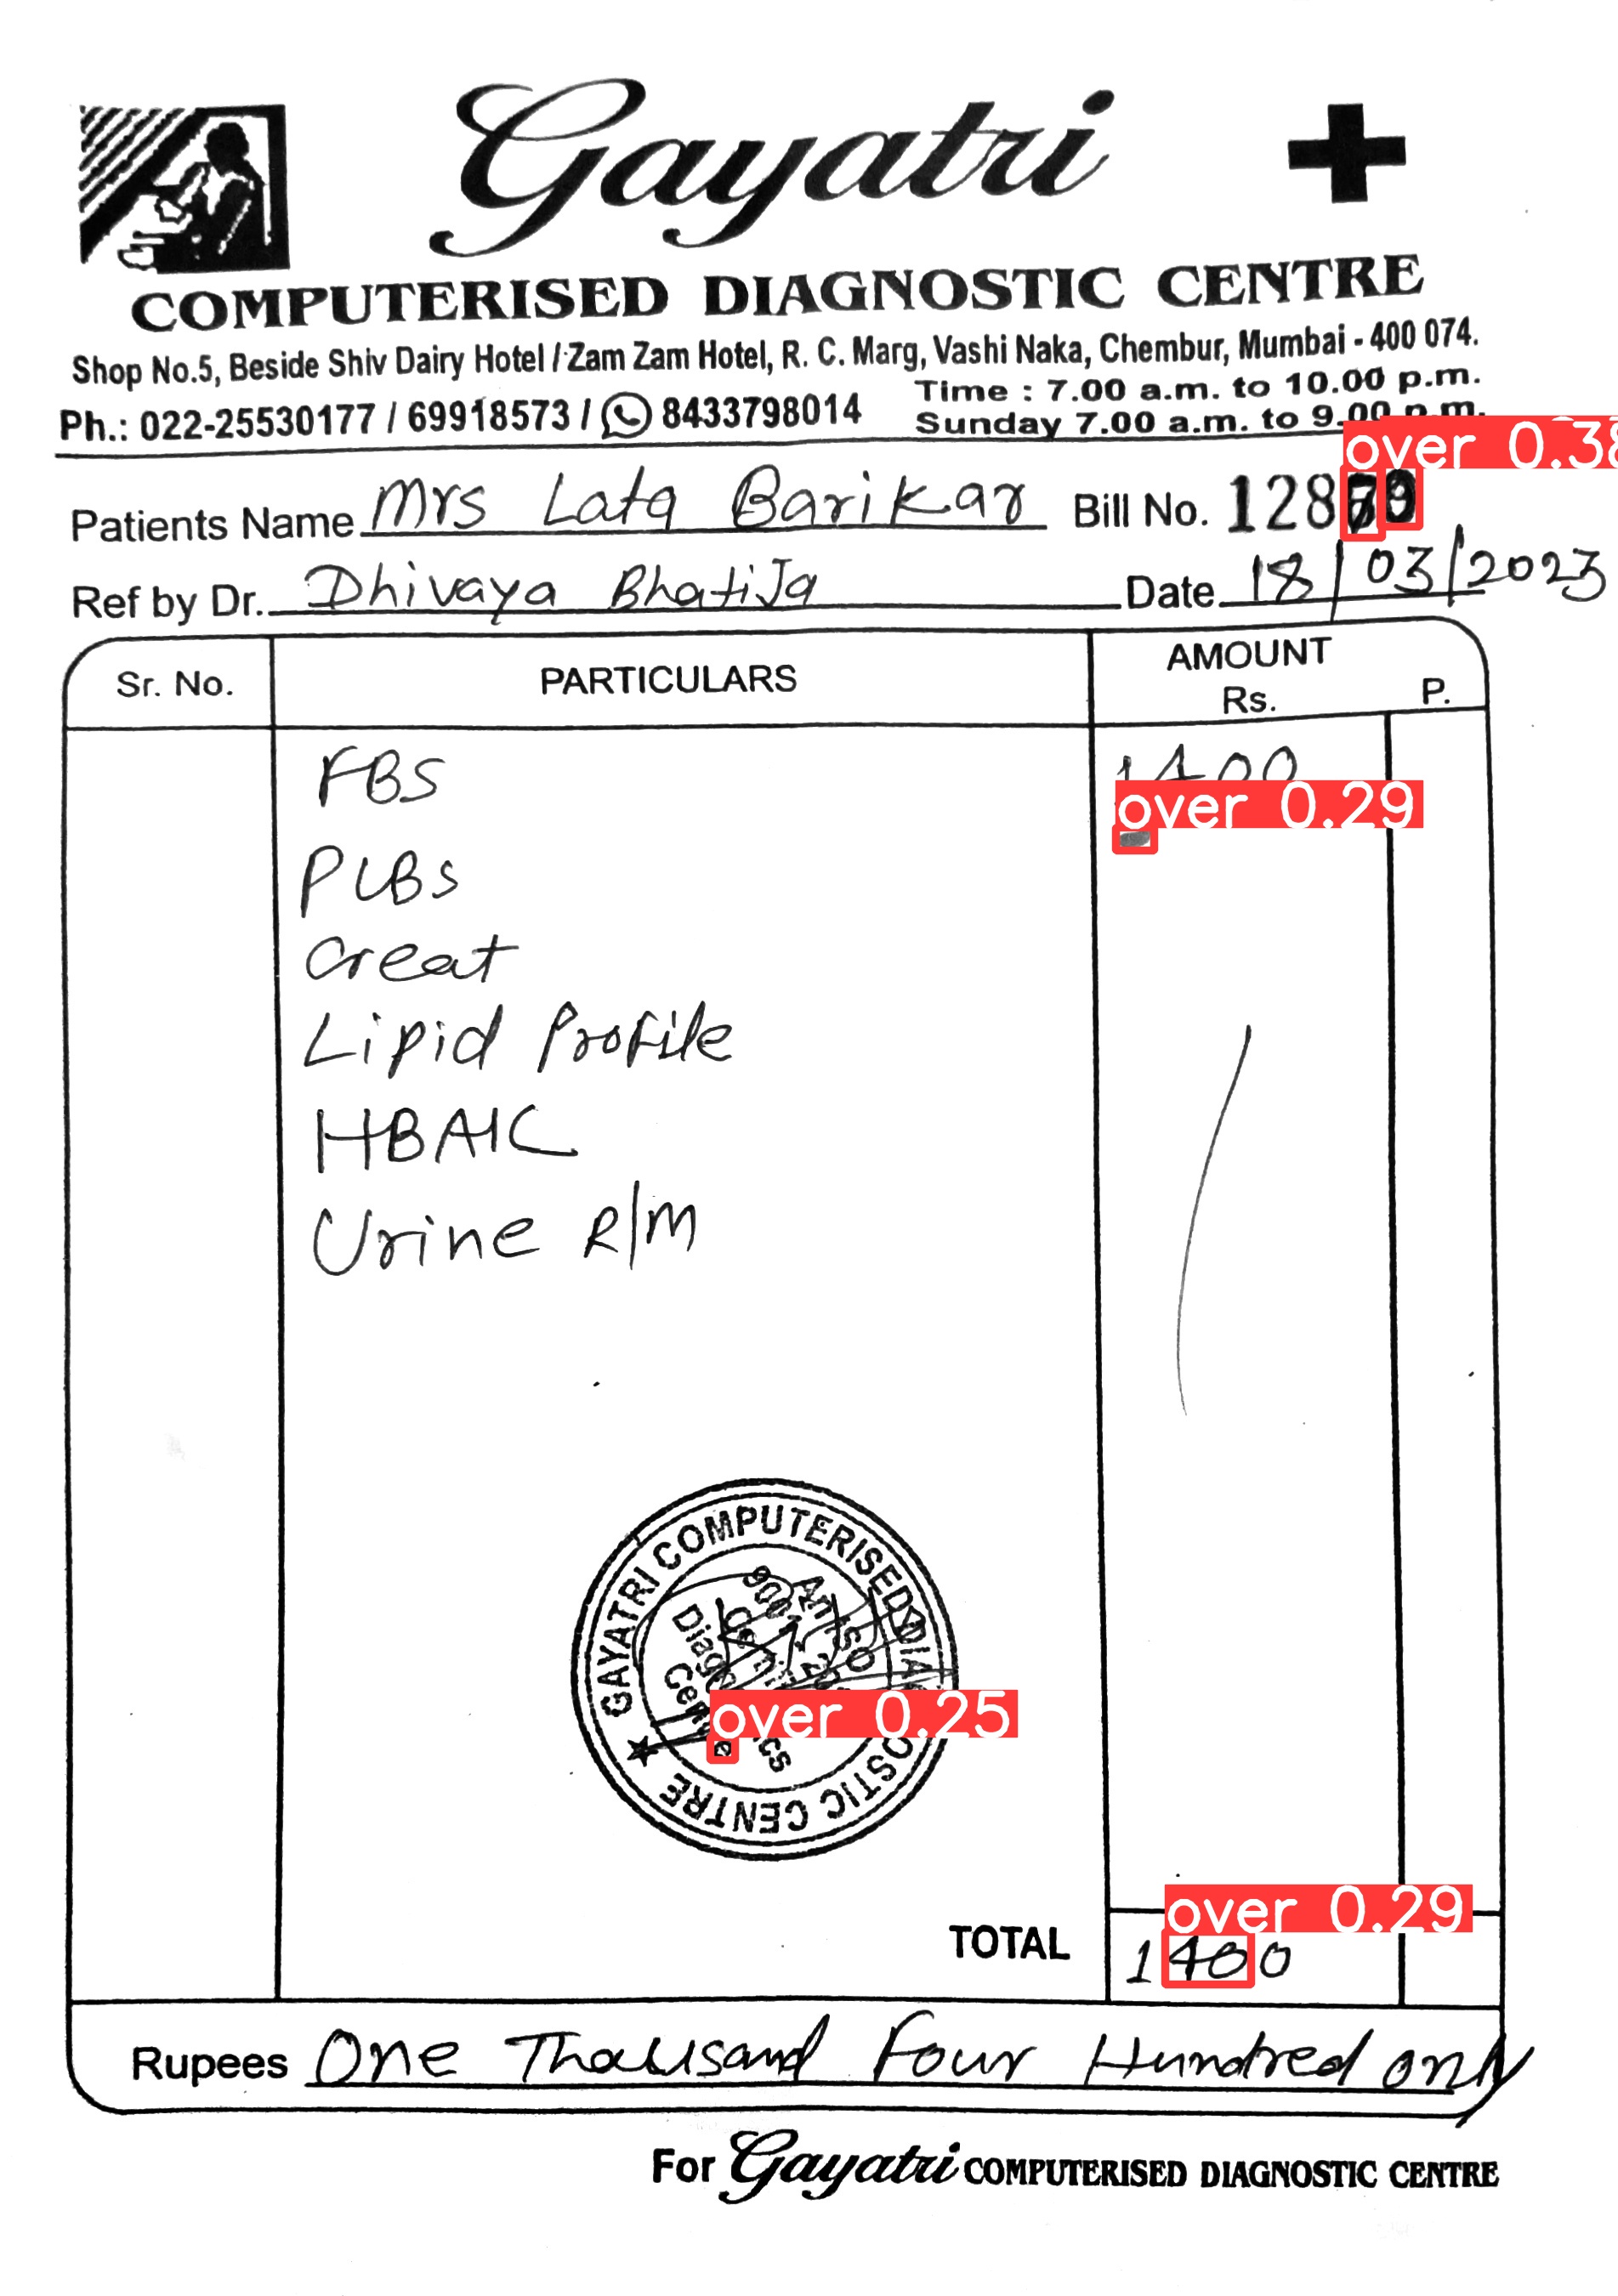 Gayatri
COMPUTERISED DIAGNOSTIC CENTRE
Shop No.5, Beside Shiv Dairy Hotel / Zam Zam Hotel, R. C. Marg, Vashi Naka, Chembur, Mumbai - 400 074.
Time : 7.00 a.m. to 10.00 p.m.
Ph.: 022-25530177 / 69918573 / 8433798014
Sunday 7.00 a.m. to 9.00 p.m.
over 0.38
Patients Name Mrs Lata Barikar Bill No.
Ref by Dr. Dhivaya Bhatija Date 18/03/2023
Sr. No. PARTICULARS AMOUNT
Rs. P.
FBS 1400
over 0.29
PLBS
Creat
Lipid Profile
HBA1C
Urine R/M
GAYATRI COMPUTERISED DIAGNOSTIC CENTRE
over 0.25
over 0.29
TOTAL 1400
Rupees One Thousand Four Hundred only
For Gayatri COMPUTERISED DIAGNOSTIC CENTRE